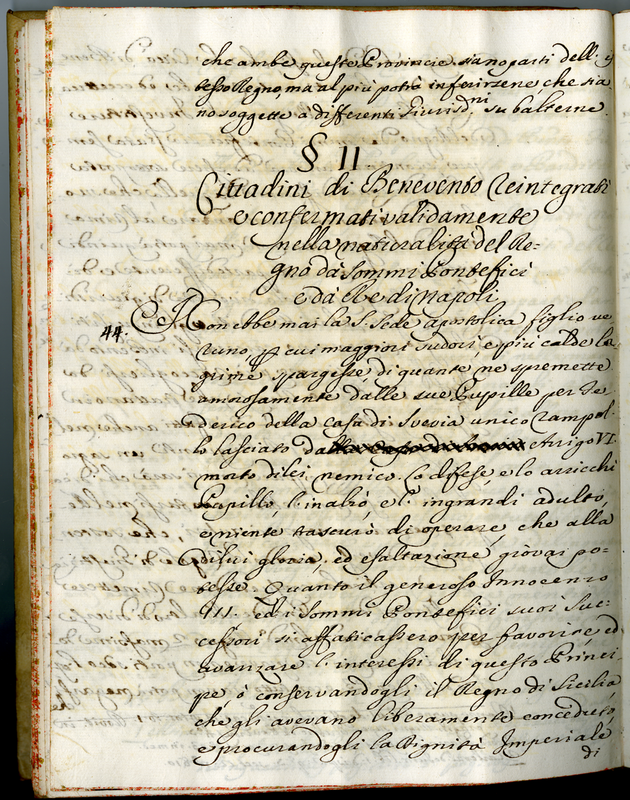 che ambe queste Provincie siano parti dell' is
tesso Regno, ma al più potrà inferirsene, che sia
no soggette a differenti Giurisdni subalterne.
§ II
Cittadini di Benevento Reintegrati
e confermati validamente
nella naturalità del Re-
gno dà Sommi Pontefici
e dà Re di Napoli
44. Non ebbe mai la S. Sede apostolica figlio ve
runo, per cui maggiori sudori, e più calde la
grime spargesse, di quante ne spremette
amorosamente dalle sue Pupille per Fe
derico della Casa di Svevia unico rampol
lo lasciato da Arrigo VI.
morto di lei nemico. Lo difese, e lo arricchì
Pupillo, l'inalzò, e l' ingrandì adulto,
e niente trascurò di operare, che alla
di lui gloria, ed esaltazione giovar po-
tesse. Quanto il generoso Innocenzo
III. ed i Sommi Pontefici suoi Suc
cessori si affaticassero per favorire ed
avanzare l' interessi di questo Princi
pe, o conservandogli il Regno di Sicilia
che gli avevano liberamente conceduto,
e procurandogli la Dignità Imperiale
di